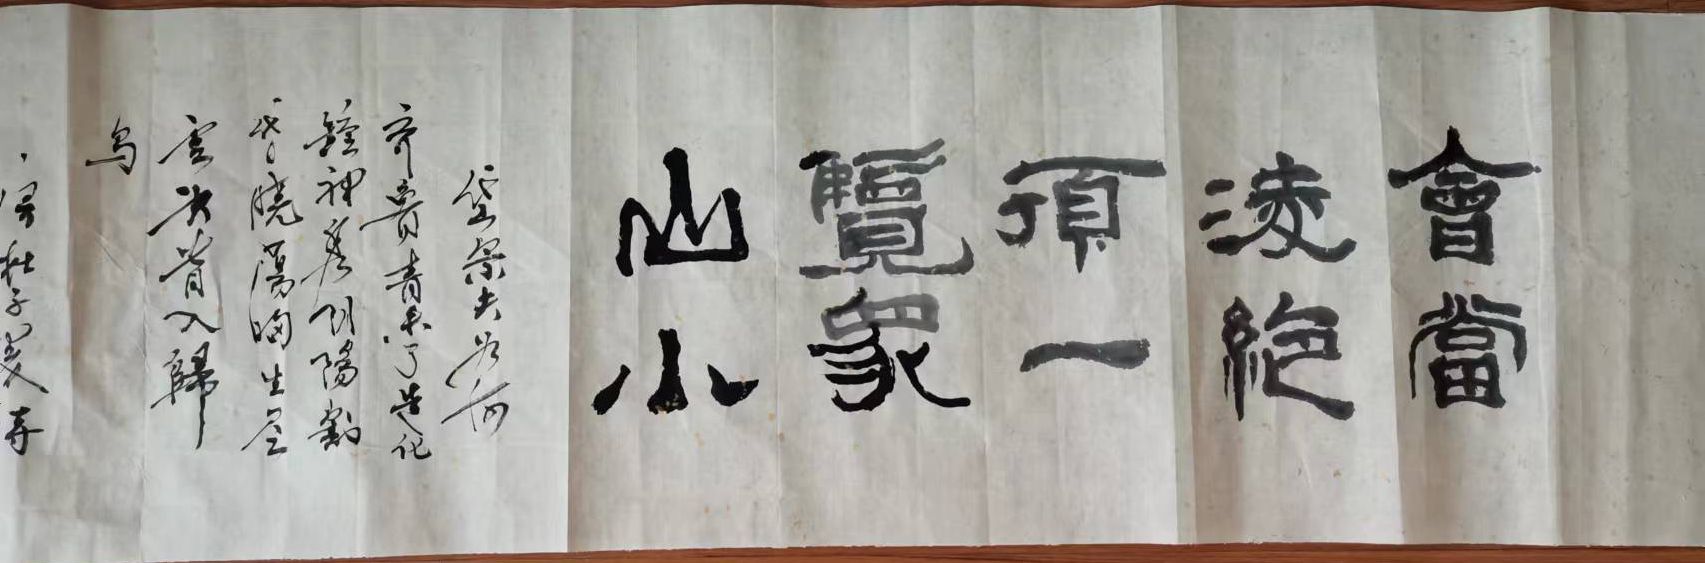 會當
淩絶
頂一
覽衆
山小
岱宗夫如何
齊魯青未了造化
鍾神秀阴陽割
昏曉蕩胸生层
雲決眥入歸
鳥
杜子美